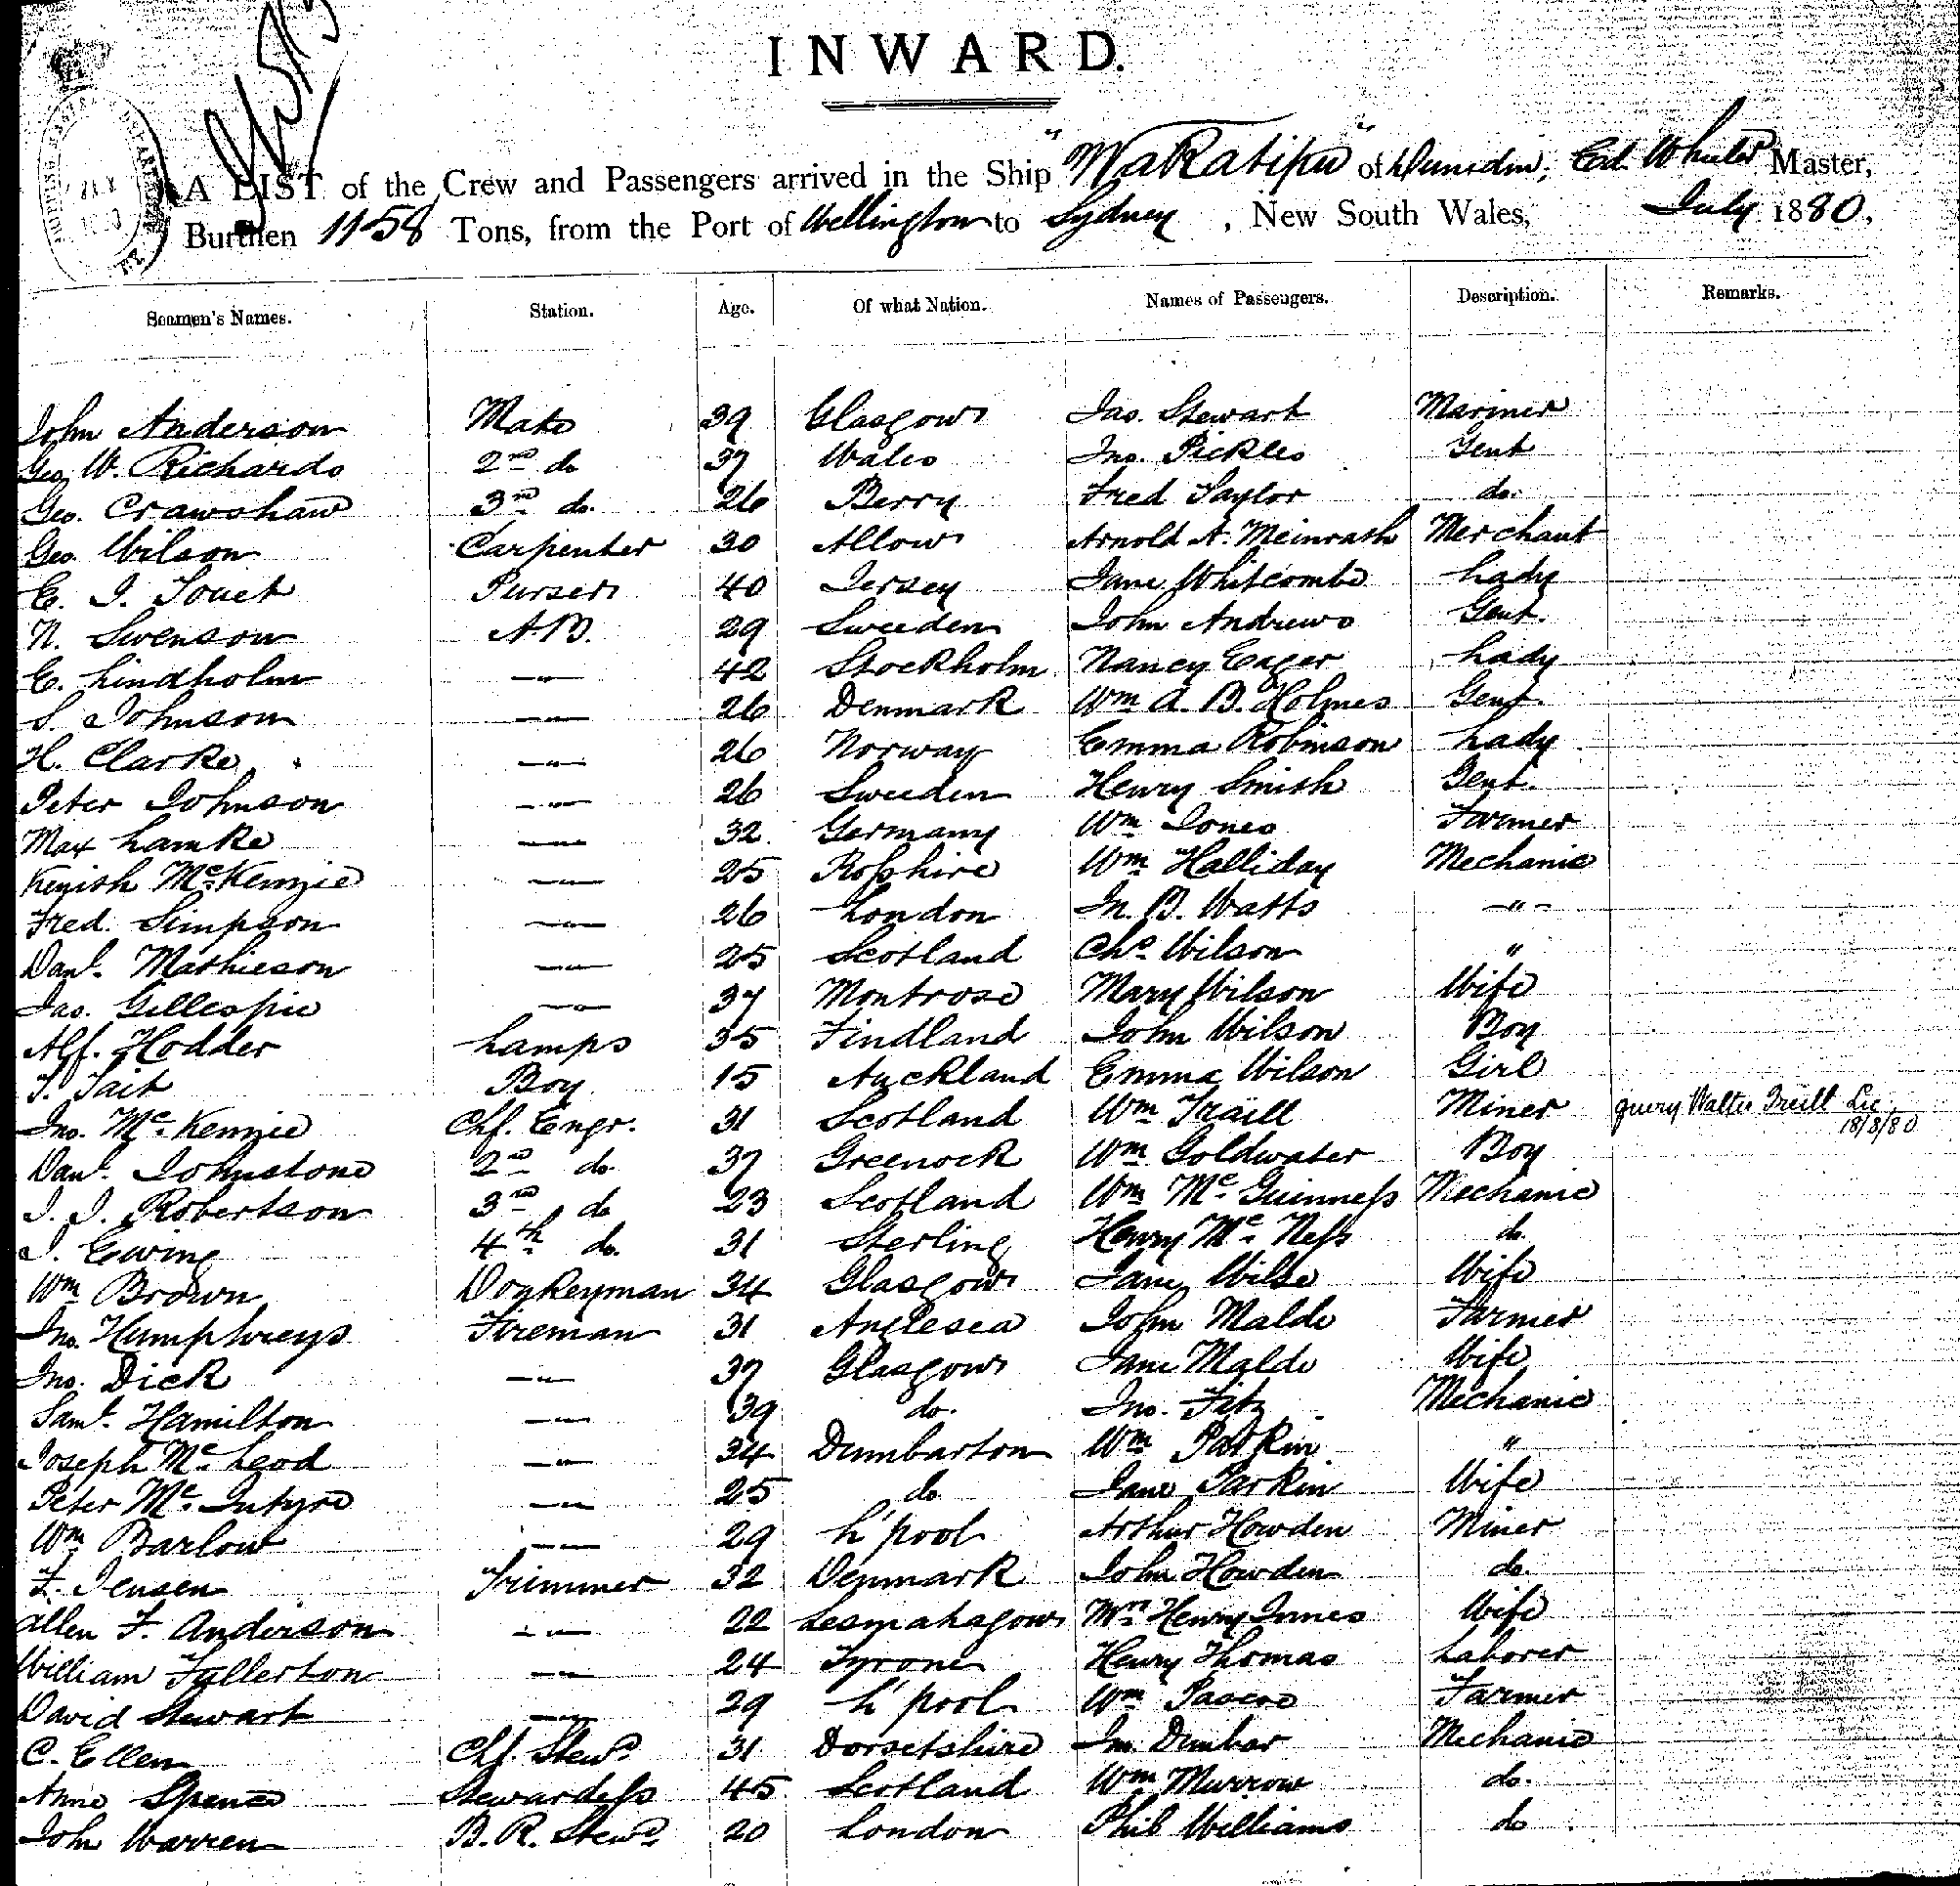 INWARD.
A LIST of the Crew and Passengers arrived in the Ship "Wakatipu" of Dunedin, Ed. Wheeler Master,
Burthen 1158 Tons, from the Port of Wellington to Sydney, New South Wales, July 1880,
Seamen's Names. Station. Age. Of what Nation. Names of Passengers. Description. Remarks.
John Anderson Mate 39 Glasgow Jas. Stewart Mariner
Geo W. Richards 2nd do 37 Wales Jno. Pickles Gent
Geo. Crawshaw 3rd do. 26 Berry Fred Taylor do.
Geo Wilson Carpenter 30 Allow Arnold A. Meinrath Merchant
E. J. Touet Purser 40 Jersey Jane Whitcombe Lady
N. Swenson A.B. 29 Sweeden John Andrews Gent.
C. Lindholm —"— 42 Stockholm Nancy Eager Lady
S. Johnson —"— 26 Denmark Wm A. B. Holmes Gent.
H. Clarke —"— 26 Norway Emma Robinson Lady
Peter Johnson —"— 26 Sweeden Henry Smith Gent.
Max Lamke —"— 32 Germany Wm Jones Farmer
Kenish McKenzie —"— 25 Rosshire Wm Halliday Mechanic
Fred. Simpson —"— 26 London Jn. B. Watts —"—
Danl. Mathieson —"— 25 Scotland Chs Wilson "
Jas. Gillespie —"— 37 Montrose Mary Wilson Wife
Alf. Hodder Lamps 35 Findland John Wilson Boy
T. Tait Boy 15 Auckland Emma Wilson Girl
Jno. McKenzie Chf. Engr. 31 Scotland Wm Traill Miner query Walter Treill Lic 18/8/80
Danl. Johnstone 2nd do. 37 Greenock Wm Goldwater Boy
J. J. Robertson 3rd do 23 Scotland Wm McGuinness Mechanic
J. Ewing 4th do. 31 Sterling Henry McNess do.
Wm Brown Donkeyman 34 Glasgow Jane Wilse Wife
Jno. Humphreys Fireman 31 Anglesea John Malde Farmer
Jno. Dick —"— 37 Glasgow Jane Malde Wife
Saml. Hamilton —"— 39 do. Jno. Fitz Mechanic
Joseph McLeod —"— 34 Dumbarton Wm Parkin "
Peter McIntyre —"— 25 do Jane Parkin Wife
Wm Barlow —"— 29 L'pool Arthur Howden Miner
F. Jensen Trimmer 32 Denmark John Howden do.
Allen F. Anderson —"— 22 Lesmahagow Mrs Henry Innes Wife
William Fullerton —"— 24 Tyrone Henry Thomas Laborer
David Stewart —"— 29 L'pool Wm Pascoe Farmer
C. Ellen Chf. Stewd 31 Dorsetshire Jn. Dunbar Mechanic
Anne Spence Stewardess 45 Scotland Wm Murrow do.
John Warren B. R. Stewd. 20 London Phil Williams do